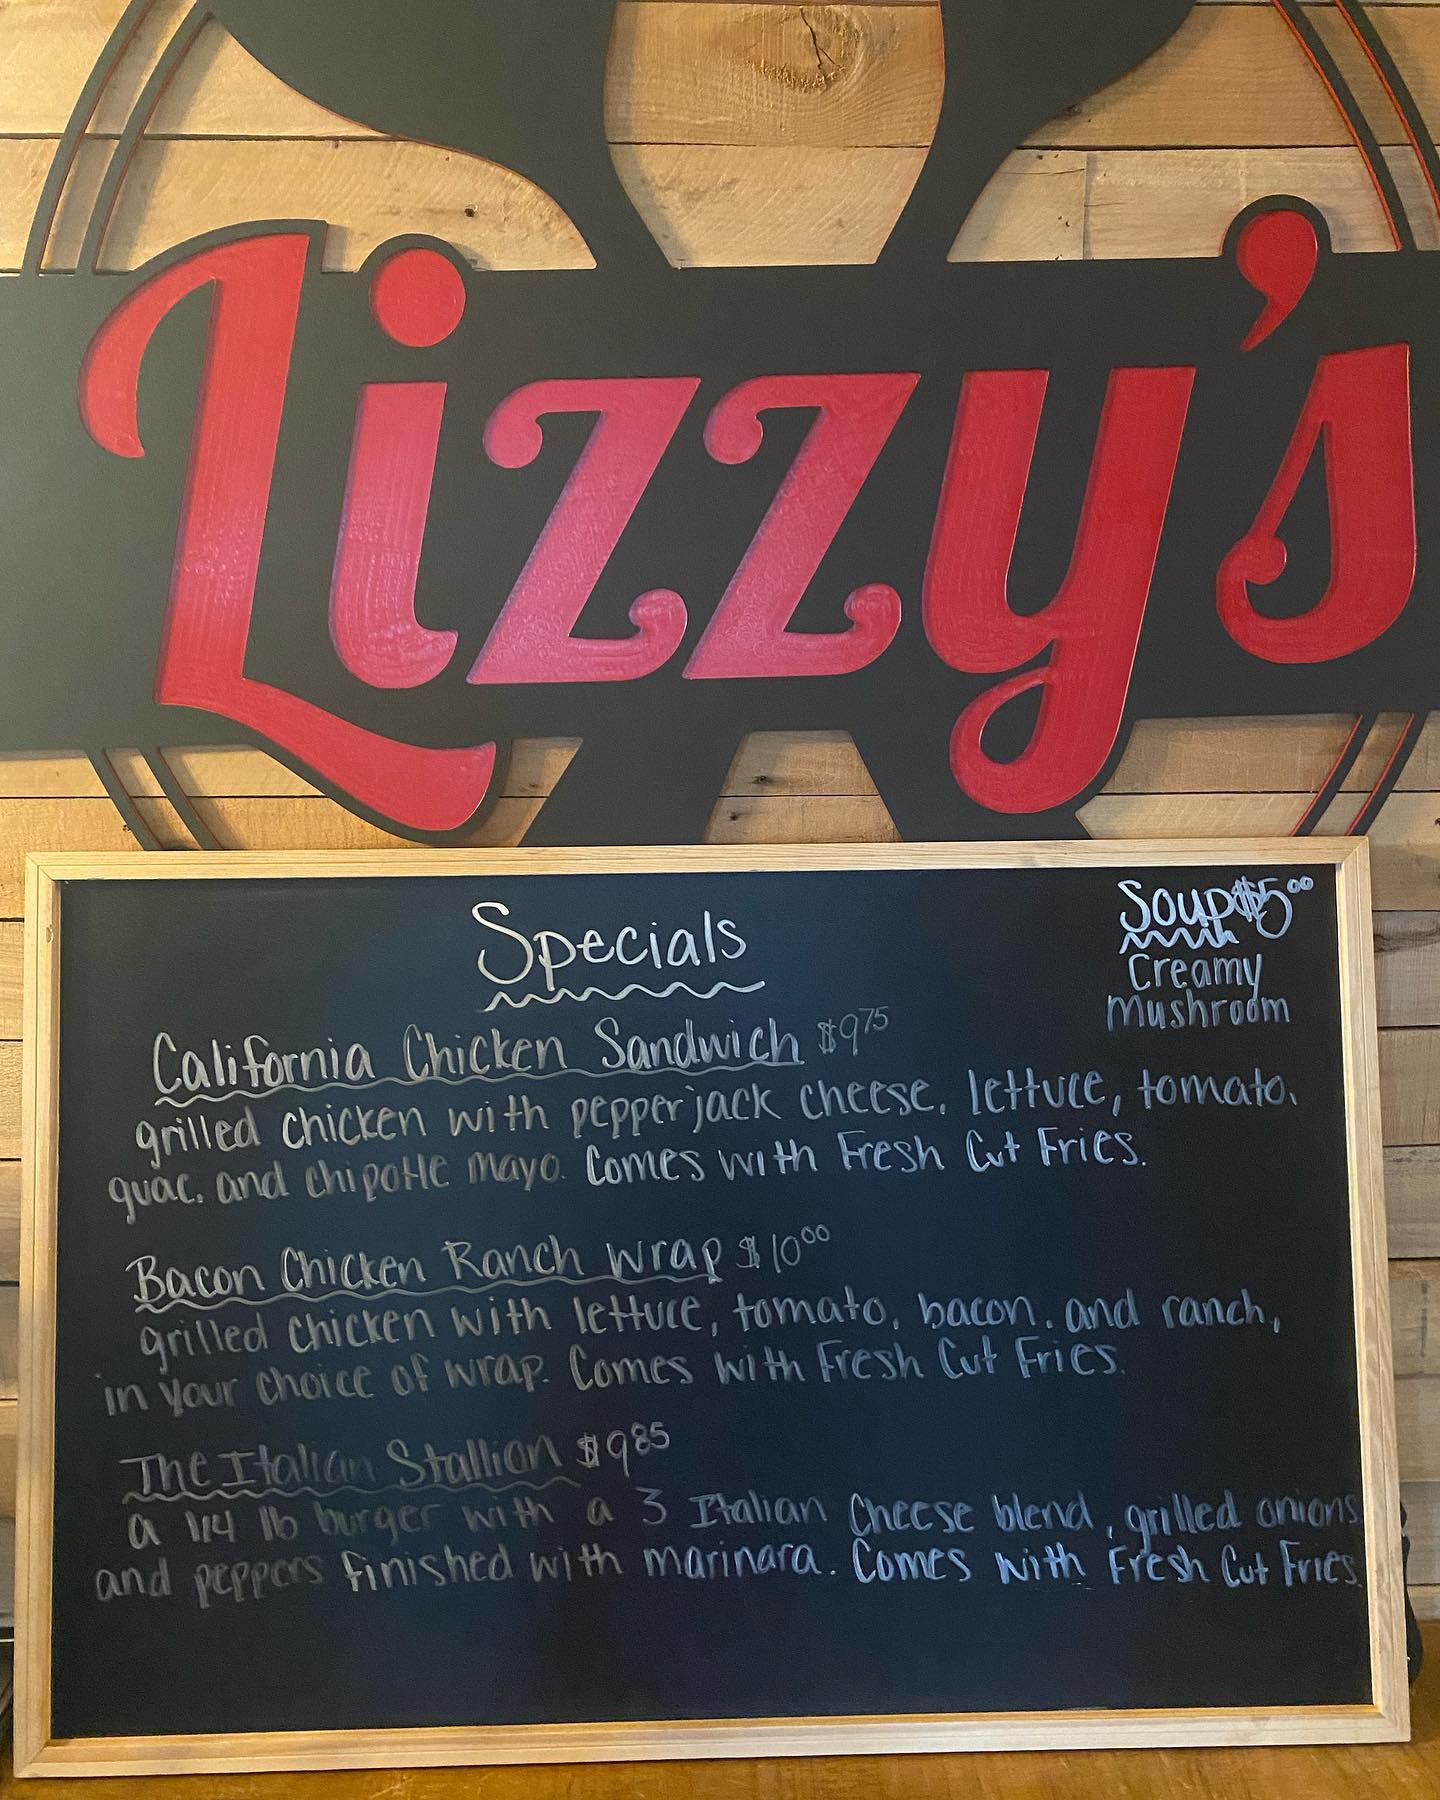 Lizzy's
Specials
Soup $5.00
Creamy
Mushroom
California Chicken Sandwich $9.75
grilled chicken with pepperjack cheese, lettuce, tomato,
guac, and chipotle mayo. Comes with Fresh Cut Fries.
Bacon Chicken Ranch Wrap $10.00
grilled chicken with lettuce, tomato, bacon, and ranch,
in your choice of wrap. Comes with Fresh Cut Fries.
The Italian Stallion $9.85
a 1/4 lb burger with a 3 Italian cheese blend, grilled onions
and peppers finished with marinara. Comes with Fresh Cut Fries.